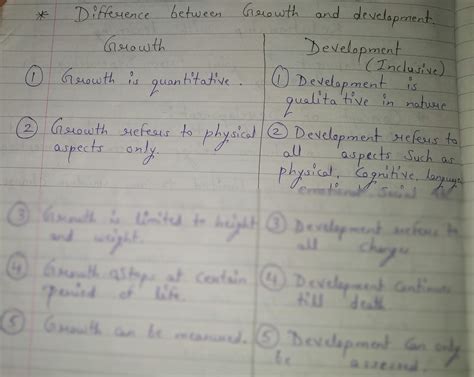 * Difference between Growth and development.
Growth
① Growth is quantitative.
② Growth refers to physical
aspects only.
③ Growth is limited to height
and weight.
④ Growth stops at certain
period of life.
⑤ Growth can be measured.
Development
(Inclusive)
① Development is
qualitative in nature
② Development refers to
all aspects such as
physical, Cognitive, language
emotional, social
③ Development refers to
all changes
④ Development continues
till death
⑤ Development can only
be assessed.